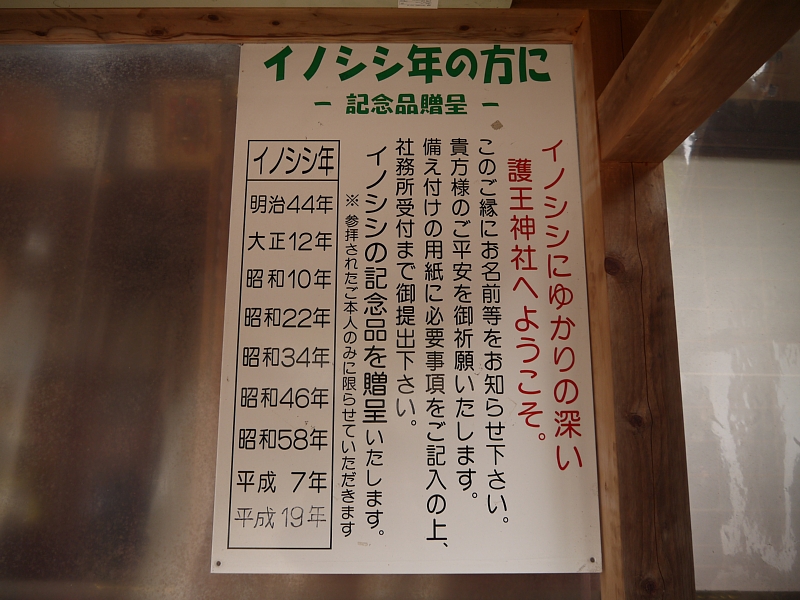 イノシシ年の方に
－ 記念品贈呈 －
イノシシにゆかりの深い
護王神社へようこそ。
このご縁にお名前等をお知らせ下さい。
貴方様のご平安を御祈願いたします。
備え付けの用紙に必要事項をご記入の上、
社務所受付まで御提出下さい。
イノシシの記念品を贈呈いたします。
※ 参拝されたご本人のみに限らせていただきます
イノシシ年
明治44年
大正12年
昭和10年
昭和22年
昭和34年
昭和46年
昭和58年
平成 7年
平成19年